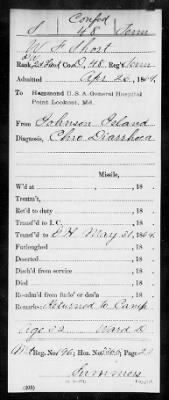 Confed
S 48 Tenn
W. F. Short
Rank, 2d Lieut Co. D, 48. Reg't Tenn
Admitted Apr 26, 1864.
To Hammond U. S. A. General Hospital
Point Lookout, Md.
From Johnson Island
Diagnosis, Chro Diarrhoea
Missile,
W'd at , 18 .
Treatm't,
Ret'd to duty , 18 .
Transf'd to I. C. , 18 .
Transf'd to G.H. May 21, 1864.
Furloughed , 18 .
Deserted , 18 .
Disch'd from service , 18 .
Died , 18 .
Readm'd from furlo' or des'n , 18 .
Remarks: Returned to Camp
Age 22 Ward D
Reg. No. Hos. No. Page 22
Summers
(203)